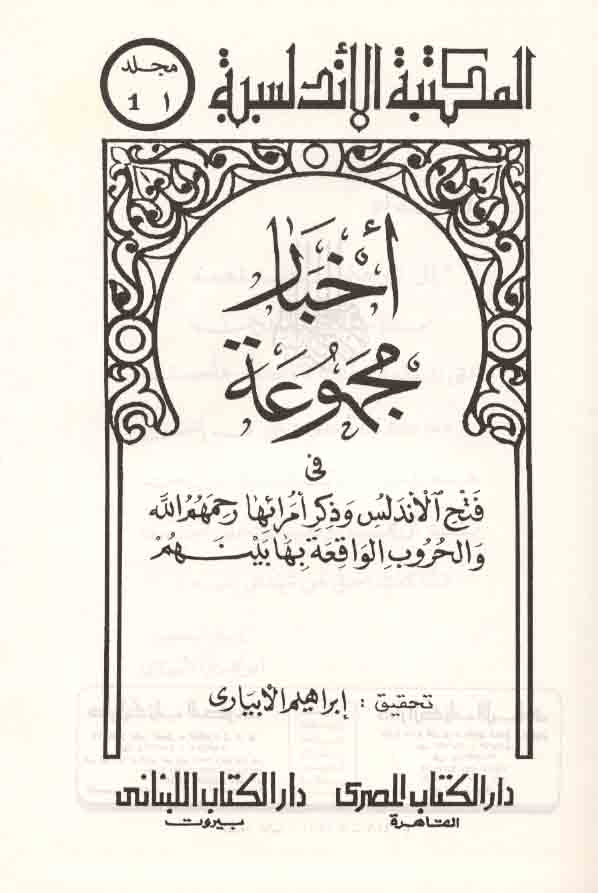 المكتبة الأندلسية
مجلد
11
أخبار
مجموعة
فى
فَتْحِ الأَنْدَلُسِ وَذِكْرِ أُمَرَائِهَا رَحِمَهُمُ اللّٰه
وَالْحُرُوبِ الْوَاقِعَةِ بِهَا بَيْنَهُمْ
تحقيق : إبراهيم الأبيارى
دار الكتاب المصرى دار الكتاب اللبنانى
القاهرة بيروت